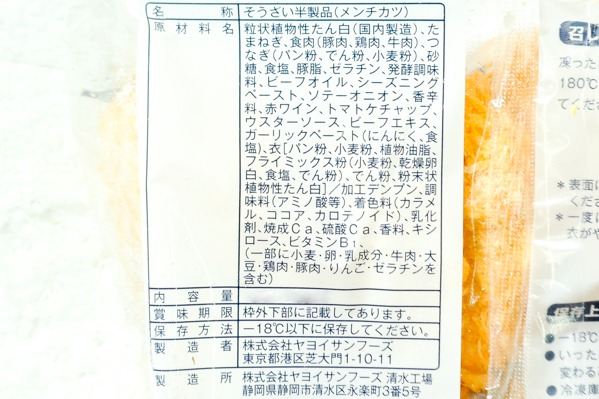 名称 そうざい半製品(メンチカツ)
原材料名 粒状植物性たん白(国内製造)、た
まねぎ、食肉(豚肉、鶏肉、牛肉)、つ
なぎ(パン粉、でん粉、小麦粉)、砂
糖、食塩、豚脂、ゼラチン、発酵調味
料、ビーフオイル、シーズニング
ペースト、ソテーオニオン、香辛
料、赤ワイン、トマトケチャップ、
ウスターソース、ビーフエキス、
ガーリックペースト(にんにく、食
塩)、衣[パン粉、小麦粉、植物油脂、
フライミックス粉(小麦粉、乾燥卵
白、食塩、でん粉)、でん粉、粉末状
植物性たん白]/加工デンプン、調
味料(アミノ酸等)、着色料(カラメ
ル、ココア、カロテノイド)、乳化
剤、焼成Ca、硫酸Ca、香料、キシ
ロース、ビタミンB1、
(一部に小麦・卵・乳成分・牛肉・大
豆・鶏肉・豚肉・りんご・ゼラチンを
含む)
内容量
賞味期限 枠外下部に記載してあります。
保存方法 −18℃以下に保存してください。
製造者 株式会社ヤヨイサンフーズ
東京都港区芝大門1-10-11
製造所 株式会社ヤヨイサンフーズ 清水工場
静岡県静岡市清水区永楽町3番5号
召し
凍った
180℃
てくだ
*表面に
くださ
*一度に
衣がや
保存上
●−18℃
●いった
変わるこ
●冷凍庫